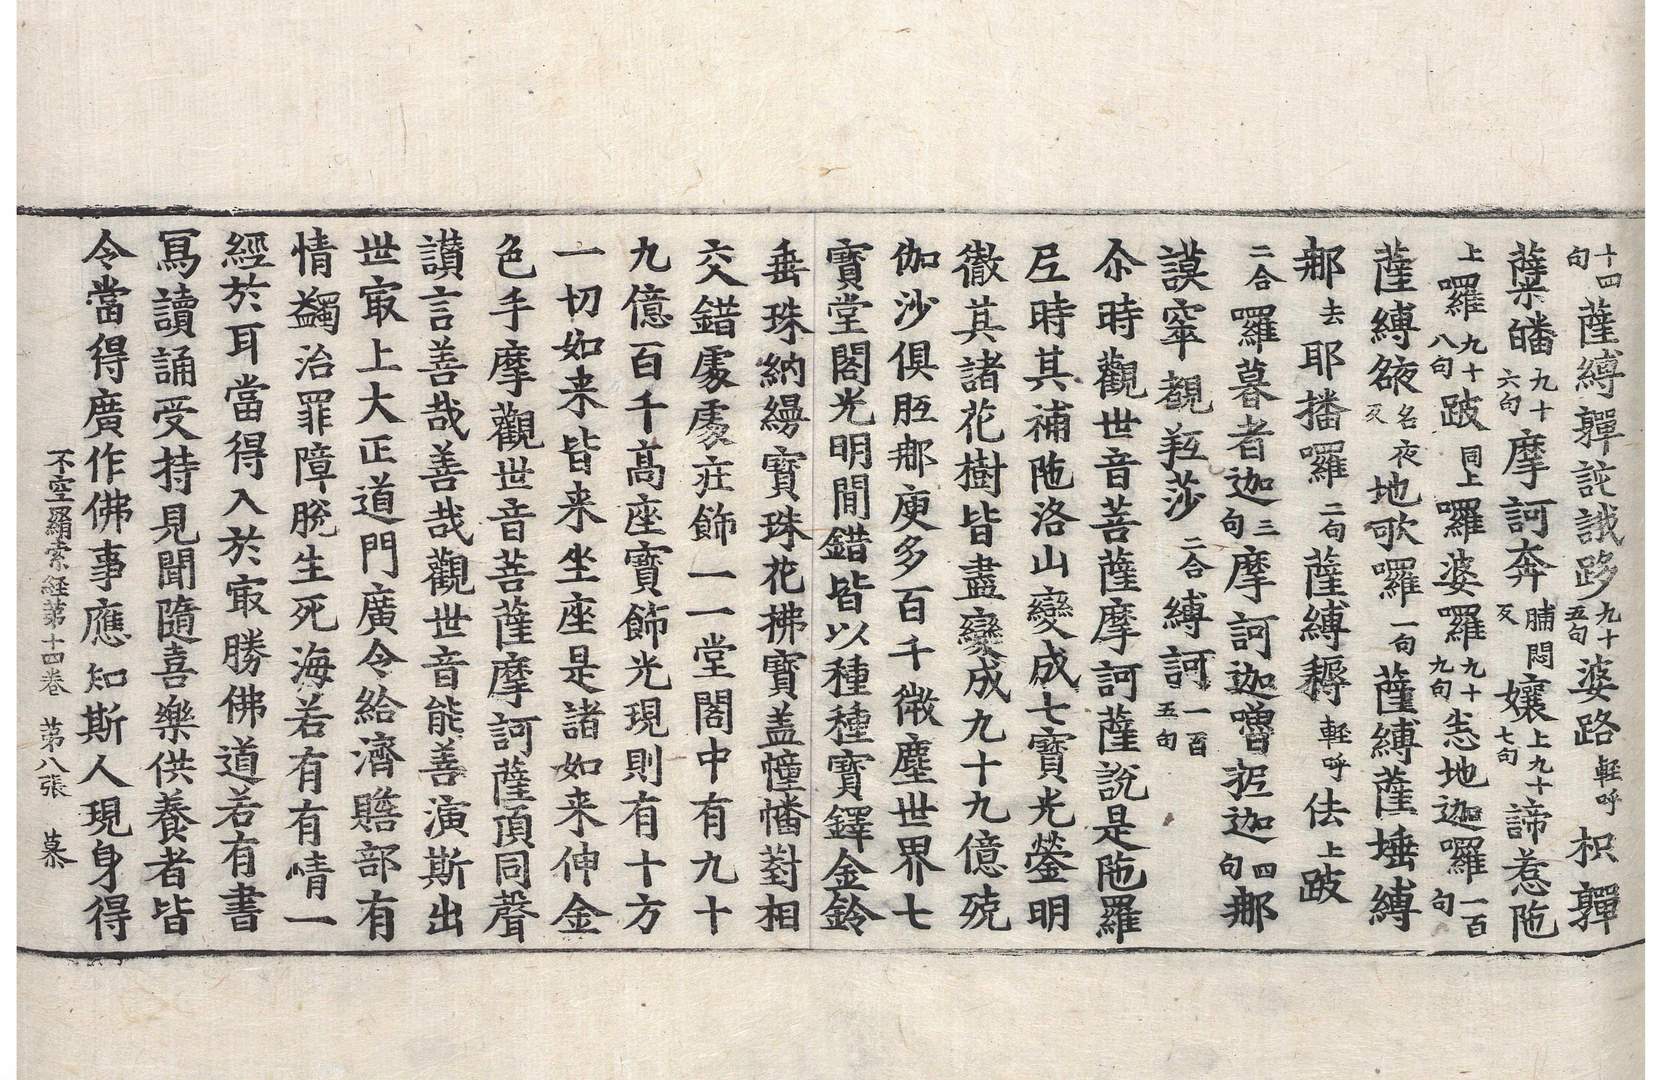 十四句薩縛鼾詫誐跢九十五句婆路輕呼枳鼾
蘖皤九十六句摩訶奔脯悶反孃上九十七句諦惹陁
上囉九十八句跛同上囉婆囉九十九句恙地迦囉一百句
薩縛皴名夜反地歌囉一句薩縛薩埵縛
那去耶播囉二句薩縛耨輕呼佉上跛
二合囉暮者迦三句摩訶迦嚕抳迦四句那
謨窣覩羝莎二合縛訶一百五句
尒時觀世音菩薩摩訶薩說是陁羅
尼時其補陁洛山變成七寶光瑩明
徹其諸花樹皆盡變成九十九億殑
伽沙俱胝那庾多百千微塵世界七
寶堂閣光明間錯皆以種種寶鐸金鈴
垂珠納縵寶珠花拂寶盖幢幡對相
交錯處處莊飾一一堂閣中有九十
九億百千高座寶飾光現則有十方
一切如来皆来坐座是諸如来伸金
色手摩觀世音菩薩摩訶薩頂同聲
讃言善哉善哉觀世音能善演斯出
世㝡上大正道門廣令給濟贍部有
情蠲治罪障脫生死海若有有情一
經於耳當得入於㝡勝佛道若有書
寫讀誦受持見聞隨喜樂供養者皆
令當得廣作佛事應知斯人現身得
不空羂索経第十四卷 第八張 慕